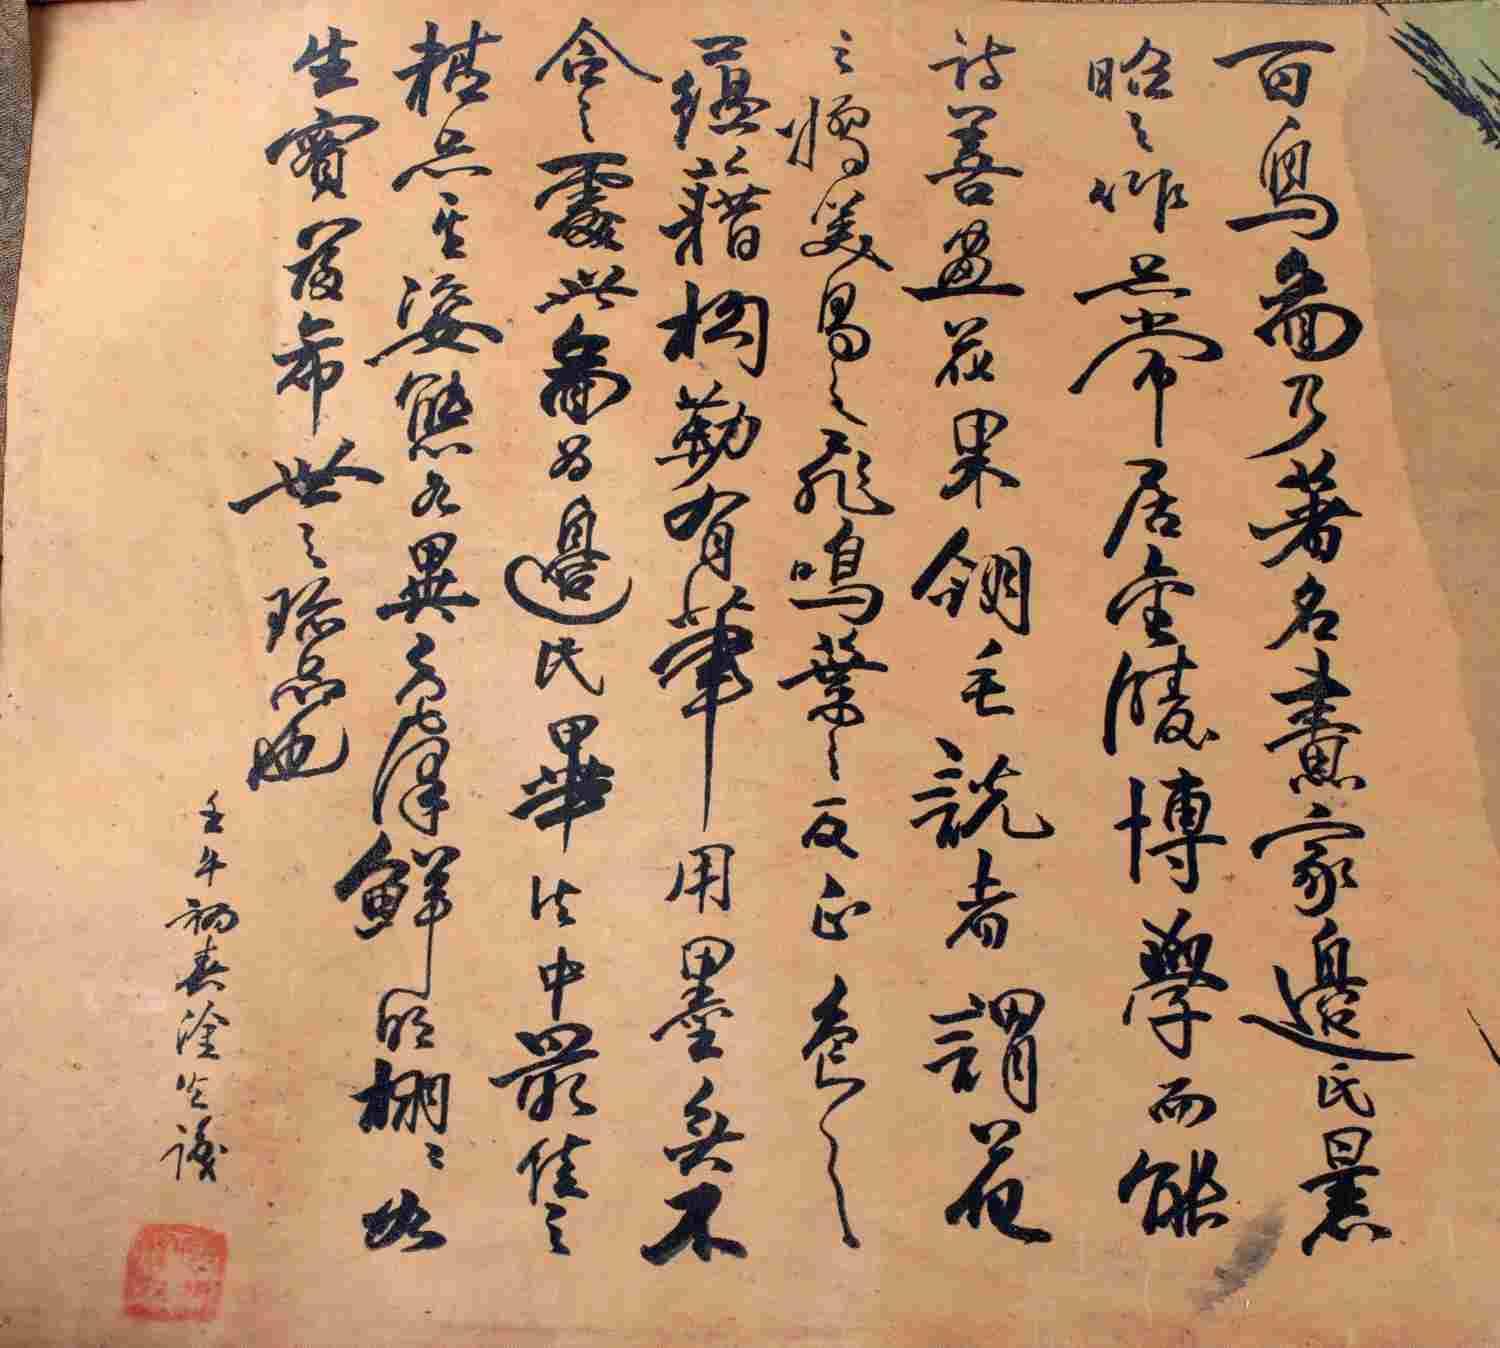 百鳥圖乃著名畫家邊氏景
昭之作也常居金陵博學而能
詩善畫花果翎毛說者謂花
之嬌美鳥之飛鳴葉之反正色之
蘊藉构勒有筆用墨無不
合之處此圖為邊氏畢生中最佳之
精品其姿態各異色澤鮮明栩栩如
生寶爲希世之珍品也
壬午初春塗生識